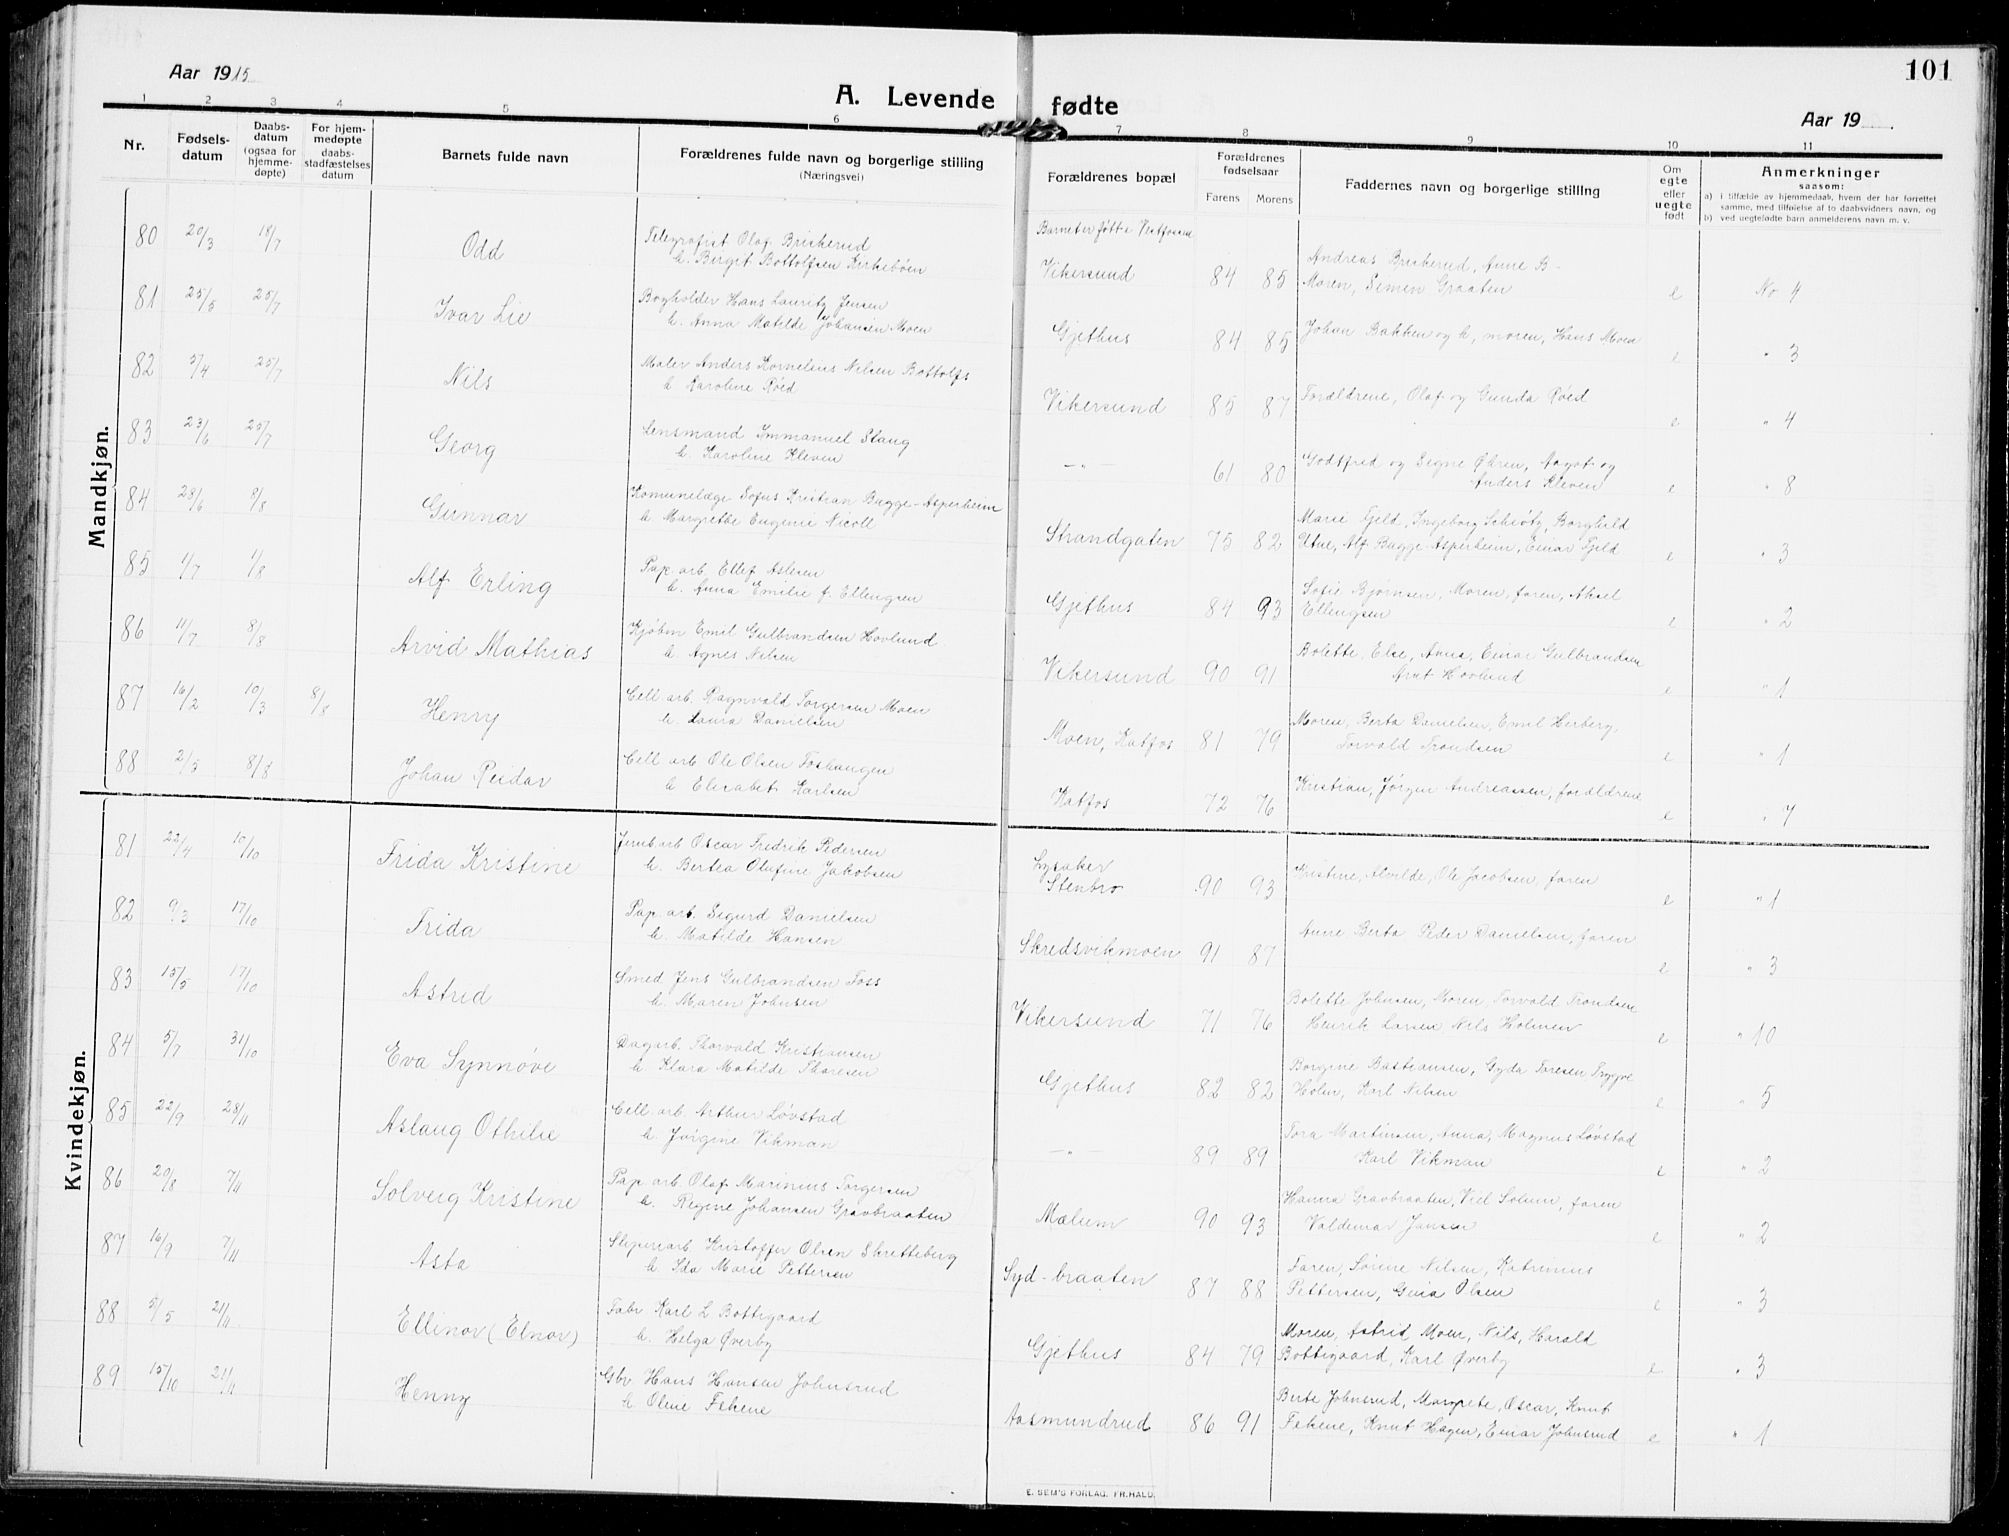 Aar 1915
101
A. Levende fødte
Aar 19
1 2 3 4 5 6 7 8 9 10 11
Nr.
Fødsels-
datum
Daabs-
datum
(ogsaa for
hjemme-
døpte)
For hjem-
medøpte
daabs-
stadfæstelses
datum
Barnets fulde navn
Forældrenes fulde navn og borgerlige stilling
(Næringsvei)
Forældrenes bopæl
Forældrenes
fødselsaar
Farens Morens
Faddernes navn og borgerlige stilling
Om
egte
eller
uegte
født
Anmerkninger
saasom:
a) i tilfælde av hjemmedaab, hvem der har forrettet
samme, med tilføielse af to daabsvidners navn, og
b) ved uegtefødte barn anmelderens navn m. v.
Mandkjøn.
80 20/3 18/7 Odd
Telegrafist Olaf Briskerud
h. Birgit Bottolfsen Kirkebøen
Barnet er født i Vestfossen
Vikersund 84 85
Andreas Briskerud, Anne B-
Moren, Simen Graaten e No 4
81 25/5 25/7 Ivar Lie
Bogholder Hans Lauritz Jensen
h. Anna Matilde Johansen Moen
Gjethus 84 85
Johan Bakken og h, moren, Hans Moen e " 3
82 5/4 25/7 Nils
Maler Anders Kornelius Nilsen Bottolfs
h Karoline Røed
Vikersund 85 87
Forældrene, Olaf og Gunda Røed e " 4
83 23/6 25/7 Georg
Lensmand Immanuel Stang
h. Karoline Kleven
-"- 61 80
Godtfred og Signe Øhren, Aagot og
Anders Kleven e " 8
84 28/6 8/8 Gunnar
Komunelæge Sofus Kristian Bagge-Asperheim
h. Margrethe Eugenie Nicoll
Strandgaten 75 82
Marie Fjeld, Ingeborg Schiøtz, Borghild
Utne, Alf Bagge-Asperheim, Einar Fjeld e " 3
85 1/7 1/8 Alf Erling
Pap. arb. Ellef Aslesen
h. Anna Emilie f. Ellengsen
Gjethus 84 93
Sofie Bjørnsen, Moren, faren, Aksel
Ellengsen e " 2
86 11/7 8/8 Arvid Mathias
Kjøbm Emil Gulbrandsen Hovlund
h. Agnes Nilsen
Vikersund 90 91
Bolette, Else, Anna, Einar Gulbrandsen
Hovlund e " 1
87 16/2 10/3 8/8 Henry
Cell arb. Ragnvald Torgersen Moen
h. Laura Danielsen
Moen, Katfos 81 79
Moren, Berta Danielsen, Emil Herberg,
Torvald Trondsen e " 1
88 2/5 8/8 Johan Reidar
Cell arb Ole Olsen Foshaugen
h Elisabet Karlsen
Katfos 72 76
Kristian, Jørgen Andreassen, forældrene e " 7
Kvindekjøn.
81 22/4 10/10 Frida Kristine
Jernb arb Oscar Fredrik Pedersen
h. Bertea Olafine Jakobsen
Lysaker
Stenbro 90 93
Kristine, Alvilde, Ole Jacobsen, faren e " 1
82 9/3 17/10 Frida
Pap. arb. Sigurd Danielsen
h. Matilde Hansen
Skredsvikmoen 91 87
Anne Berta Peder Danielsen, faren e " 3
83 15/5 17/10 Astrid
Smed Jens Gulbrandsen Foss
h. Maren Johnsen
Vikersund 71 76
Bolette Johnsen, Moren, Torvald Trondsen
Henrik Larsen, Nils Holmen e " 10
84 5/7 31/10 Eva Synnøve
Dagarb. Thorvald Kristiansen
h. Klara Matilde Thoresen
Gjethus 82 82
Borgine Bastiansen, Gyda Toresen, Trygve
Holm, Karl Nilsen e " 5
85 22/9 28/11 Aslaug Othilie
Cell. arb. Arthur Løvstad
h. Jørgine Vikman
-"- 89 89
Tora Martinsen, Anna, Magnus Løvstad
Karl Vikman e " 2
86 20/8 7/11 Solveig Kristine
Pap arb Olaf Marinius Torgersen
h. Regine Johansen Gravbraaten
Mælum 90 93
Hanna Gravbraaten, Viel Solum, faren
Valdemar Jansen e " 2
87 16/9 7/11 Asta
Sliperiarb Kristoffer Olsen Skretteberg
h Ida Marie Pettersen
Syd-braaten 87 88
Faren, Lorine Nilsen, Katrinius
Pettersen, Gina Olsen e " 3
88 5/5 21/11 Ellinor (Elnor)
Fabr Karl L Bottigaard
h. Helga Øverby
Gjethus 84 79
Moren, Astrid Moen, Nils, Harald
Bottigaard, Karl Øverby e " 3
89 15/10 21/11 Henny
Gbr Hans Hansen Johnsrud
h Oline Fekene
Aasmundrud 86 91
Berte Johnsrud, Margrete, Oscar, Knut
Fekene, Knut Hagen, Einar Johnsrud e " 1
E. SEM'S FORLAG, FR.HALD.